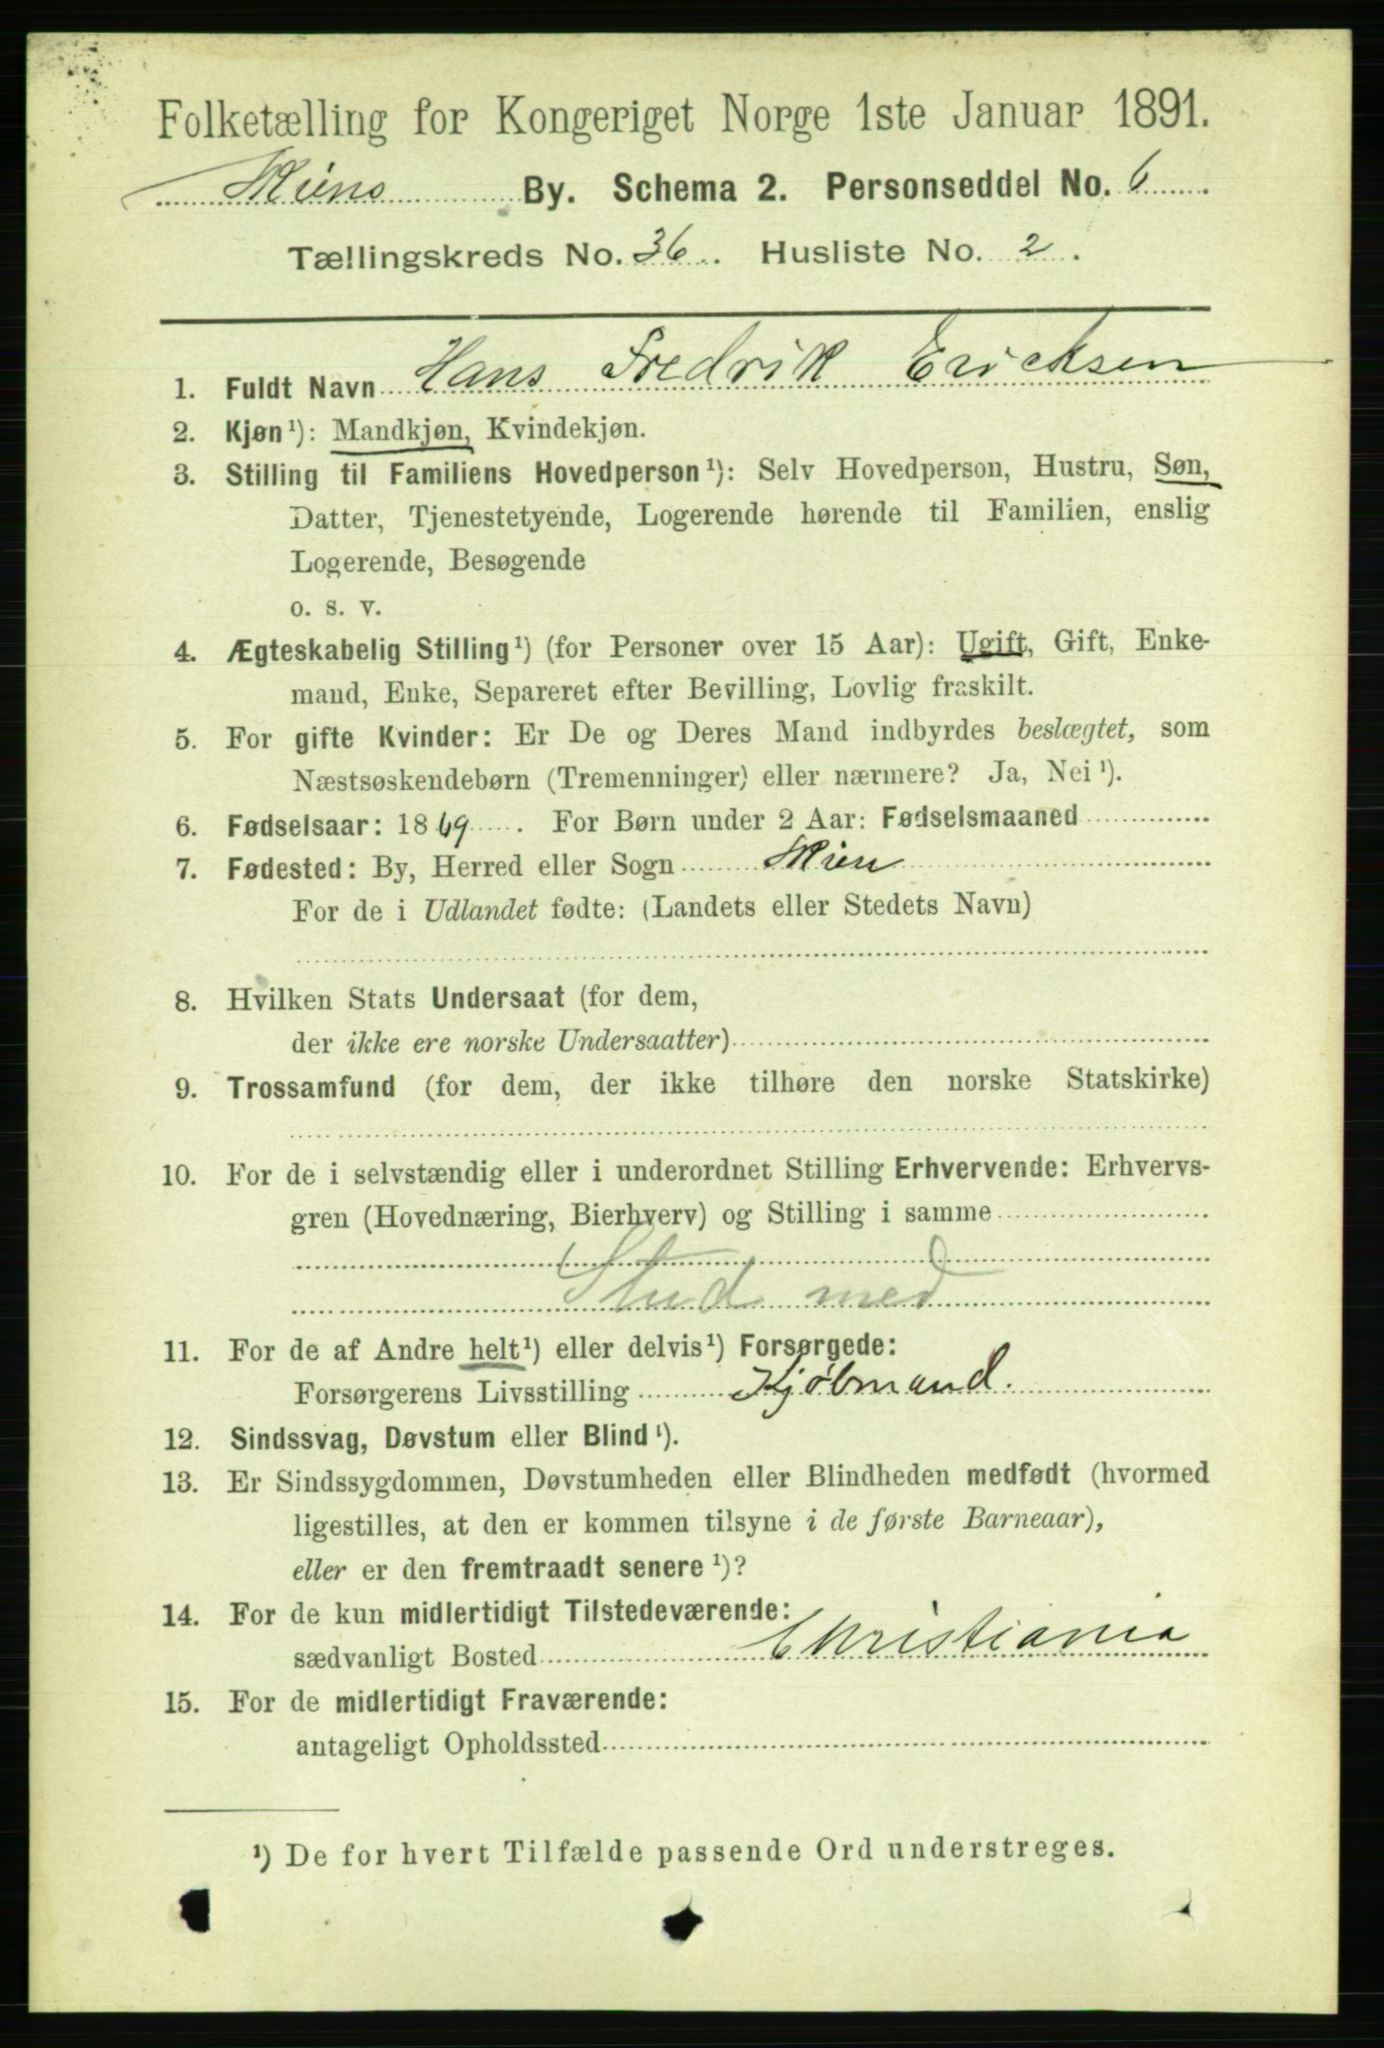 Folketælling for Kongeriget Norge 1ste Januar 1891.
Skiens By. Schema 2. Personseddel No. 6
Tællingskreds No. 36. Husliste No. 2.
1. Fuldt Navn Hans Fredrik Ericksen
2. Kjøn¹): Mandkjøn, Kvindekjøn.
3. Stilling til Familiens Hovedperson¹): Selv Hovedperson, Hustru, Søn,
Datter, Tjenestetyende, Logerende hørende til Familien, enslig
Logerende, Besøgende
o. s. v.
4. Ægteskabelig Stilling¹) (for Personer over 15 Aar): Ugift, Gift, Enke-
mand, Enke, Separeret efter Bevilling, Lovlig fraskilt.
5. For gifte Kvinder: Er De og Deres Mand indbyrdes beslægtet, som
Næstsøskendebørn (Tremenninger) eller nærmere? Ja, Nei¹).
6. Fødselsaar: 1869. For Børn under 2 Aar: Fødselsmaaned
7. Fødested: By, Herred eller Sogn Skien
For de i Udlandet fødte: (Landets eller Stedets Navn)
8. Hvilken Stats Undersaat (for dem,
der ikke ere norske Undersaatter)
9. Trossamfund (for dem, der ikke tilhøre den norske Statskirke)
10. For de i selvstændig eller i underordnet Stilling Erhvervende: Erhvervs-
gren (Hovednæring, Bierhverv) og Stilling i samme
Stud med
11. For de af Andre helt¹) eller delvis¹) Forsørgede:
Forsørgerens Livsstilling Kjøbmand.
12. Sindssvag, Døvstum eller Blind¹).
13. Er Sindssygdommen, Døvstumheden eller Blindheden medfødt (hvormed
ligestilles, at den er kommen tilsyne i de første Barneaar),
eller er den fremtraadt senere¹)?
14. For de kun midlertidigt Tilstedeværende:
sædvanligt Bosted Christiania
15. For de midlertidigt Fraværende:
antageligt Opholdssted
¹) De for hvert Tilfælde passende Ord understreges.